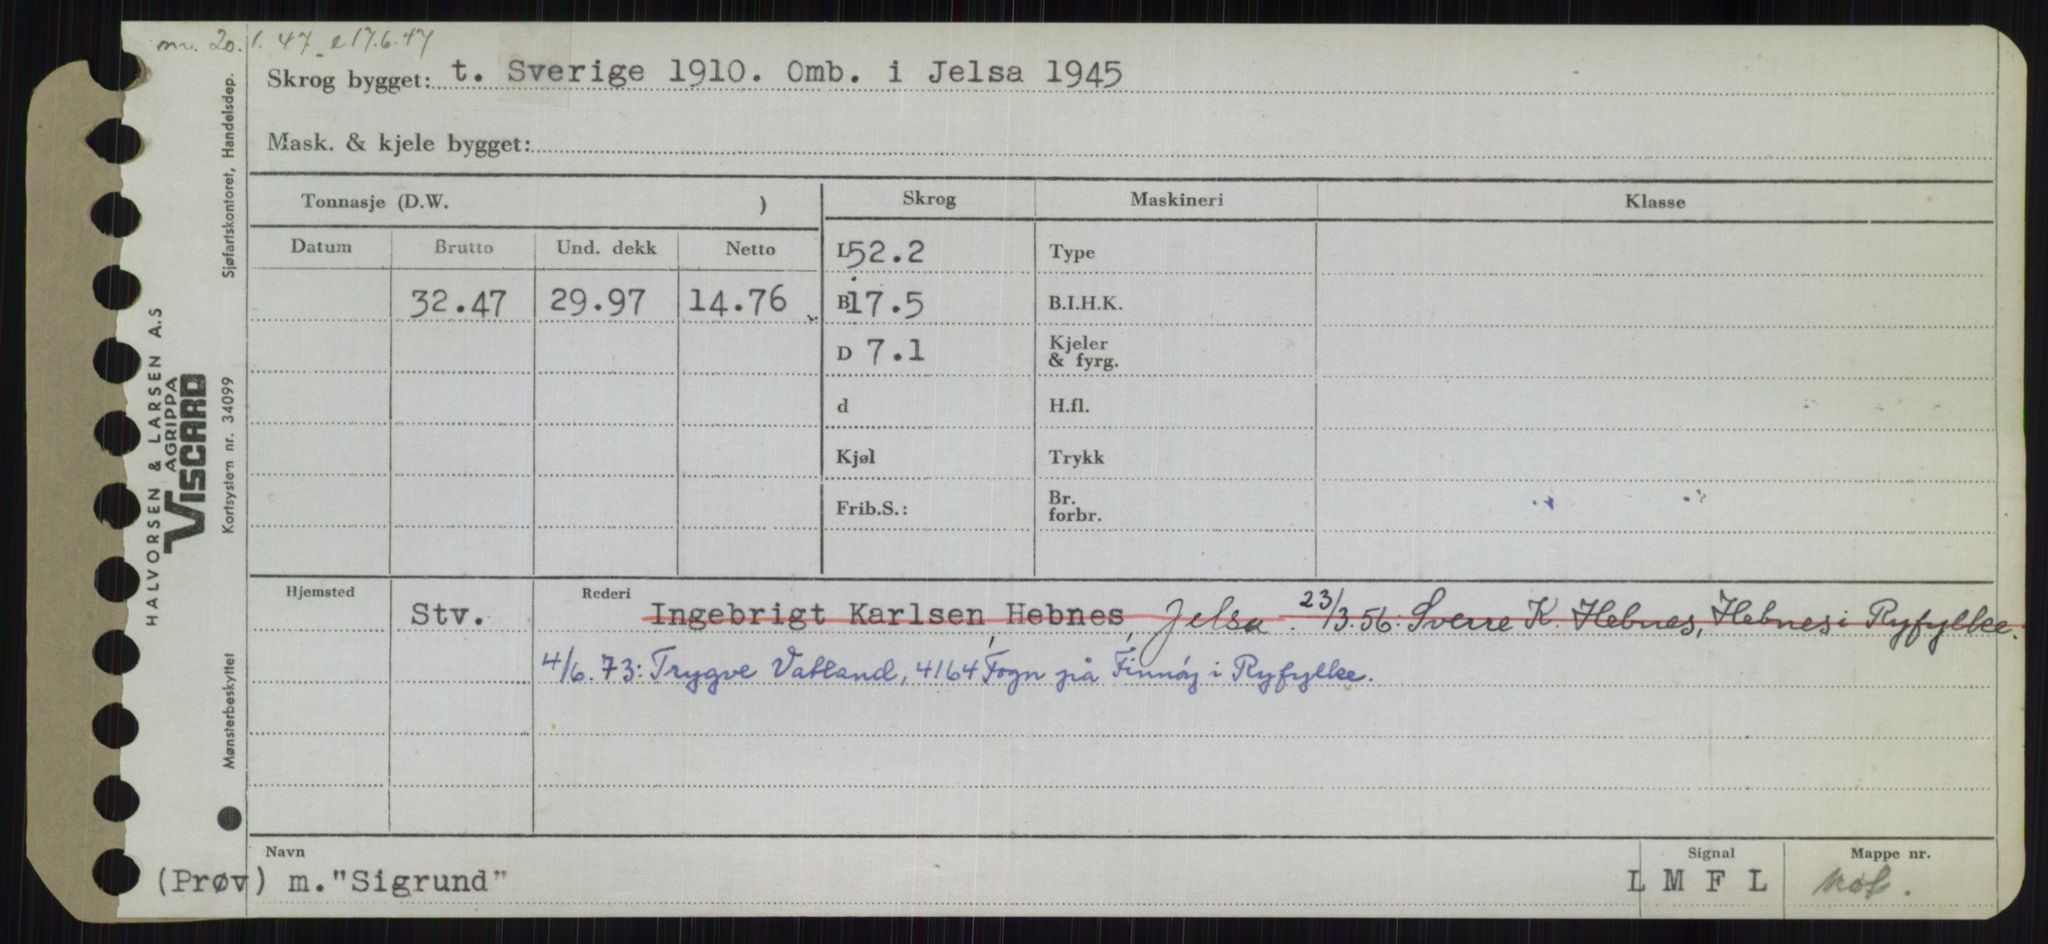 nr. 20.1.47 - e 17.6.47
Skrog bygget: t. Sverige 1910. Omb. i Jelsa 1945
Mask. & kjele bygget:
Tonnasje (D.W. )
Skrog
Maskineri
Klasse
Datum
Brutto
Und. dekk
Netto
L 52.2
Type
32.47
29.97
14.76
B 17.5
B.I.H.K.
D 7.1
Kjeler
& fyrg.
d
H.fl.
Kjøl
Trykk
Frib.S.:
Br.
forbr.
Hjemsted
Stv.
Rederi
Ingebrigt Karlsen Hebnes, Jelsa. 23/3.56: Sverre K. Hebnes, Hebnes i Ryfylke.
4/6.73: Trygve Vatland, 4164 Fogn på Finnøy i Ryfylke.
Navn
(Prøv) m. "Sigrund"
Signal
L M F L
Mappe nr.
Sjøfartskontoret, Handelsdep.
HALVORSEN & LARSEN A.S
AGRIPPA
VISCARD
Kortsystem nr. 34099
Mønsterbeskyttet